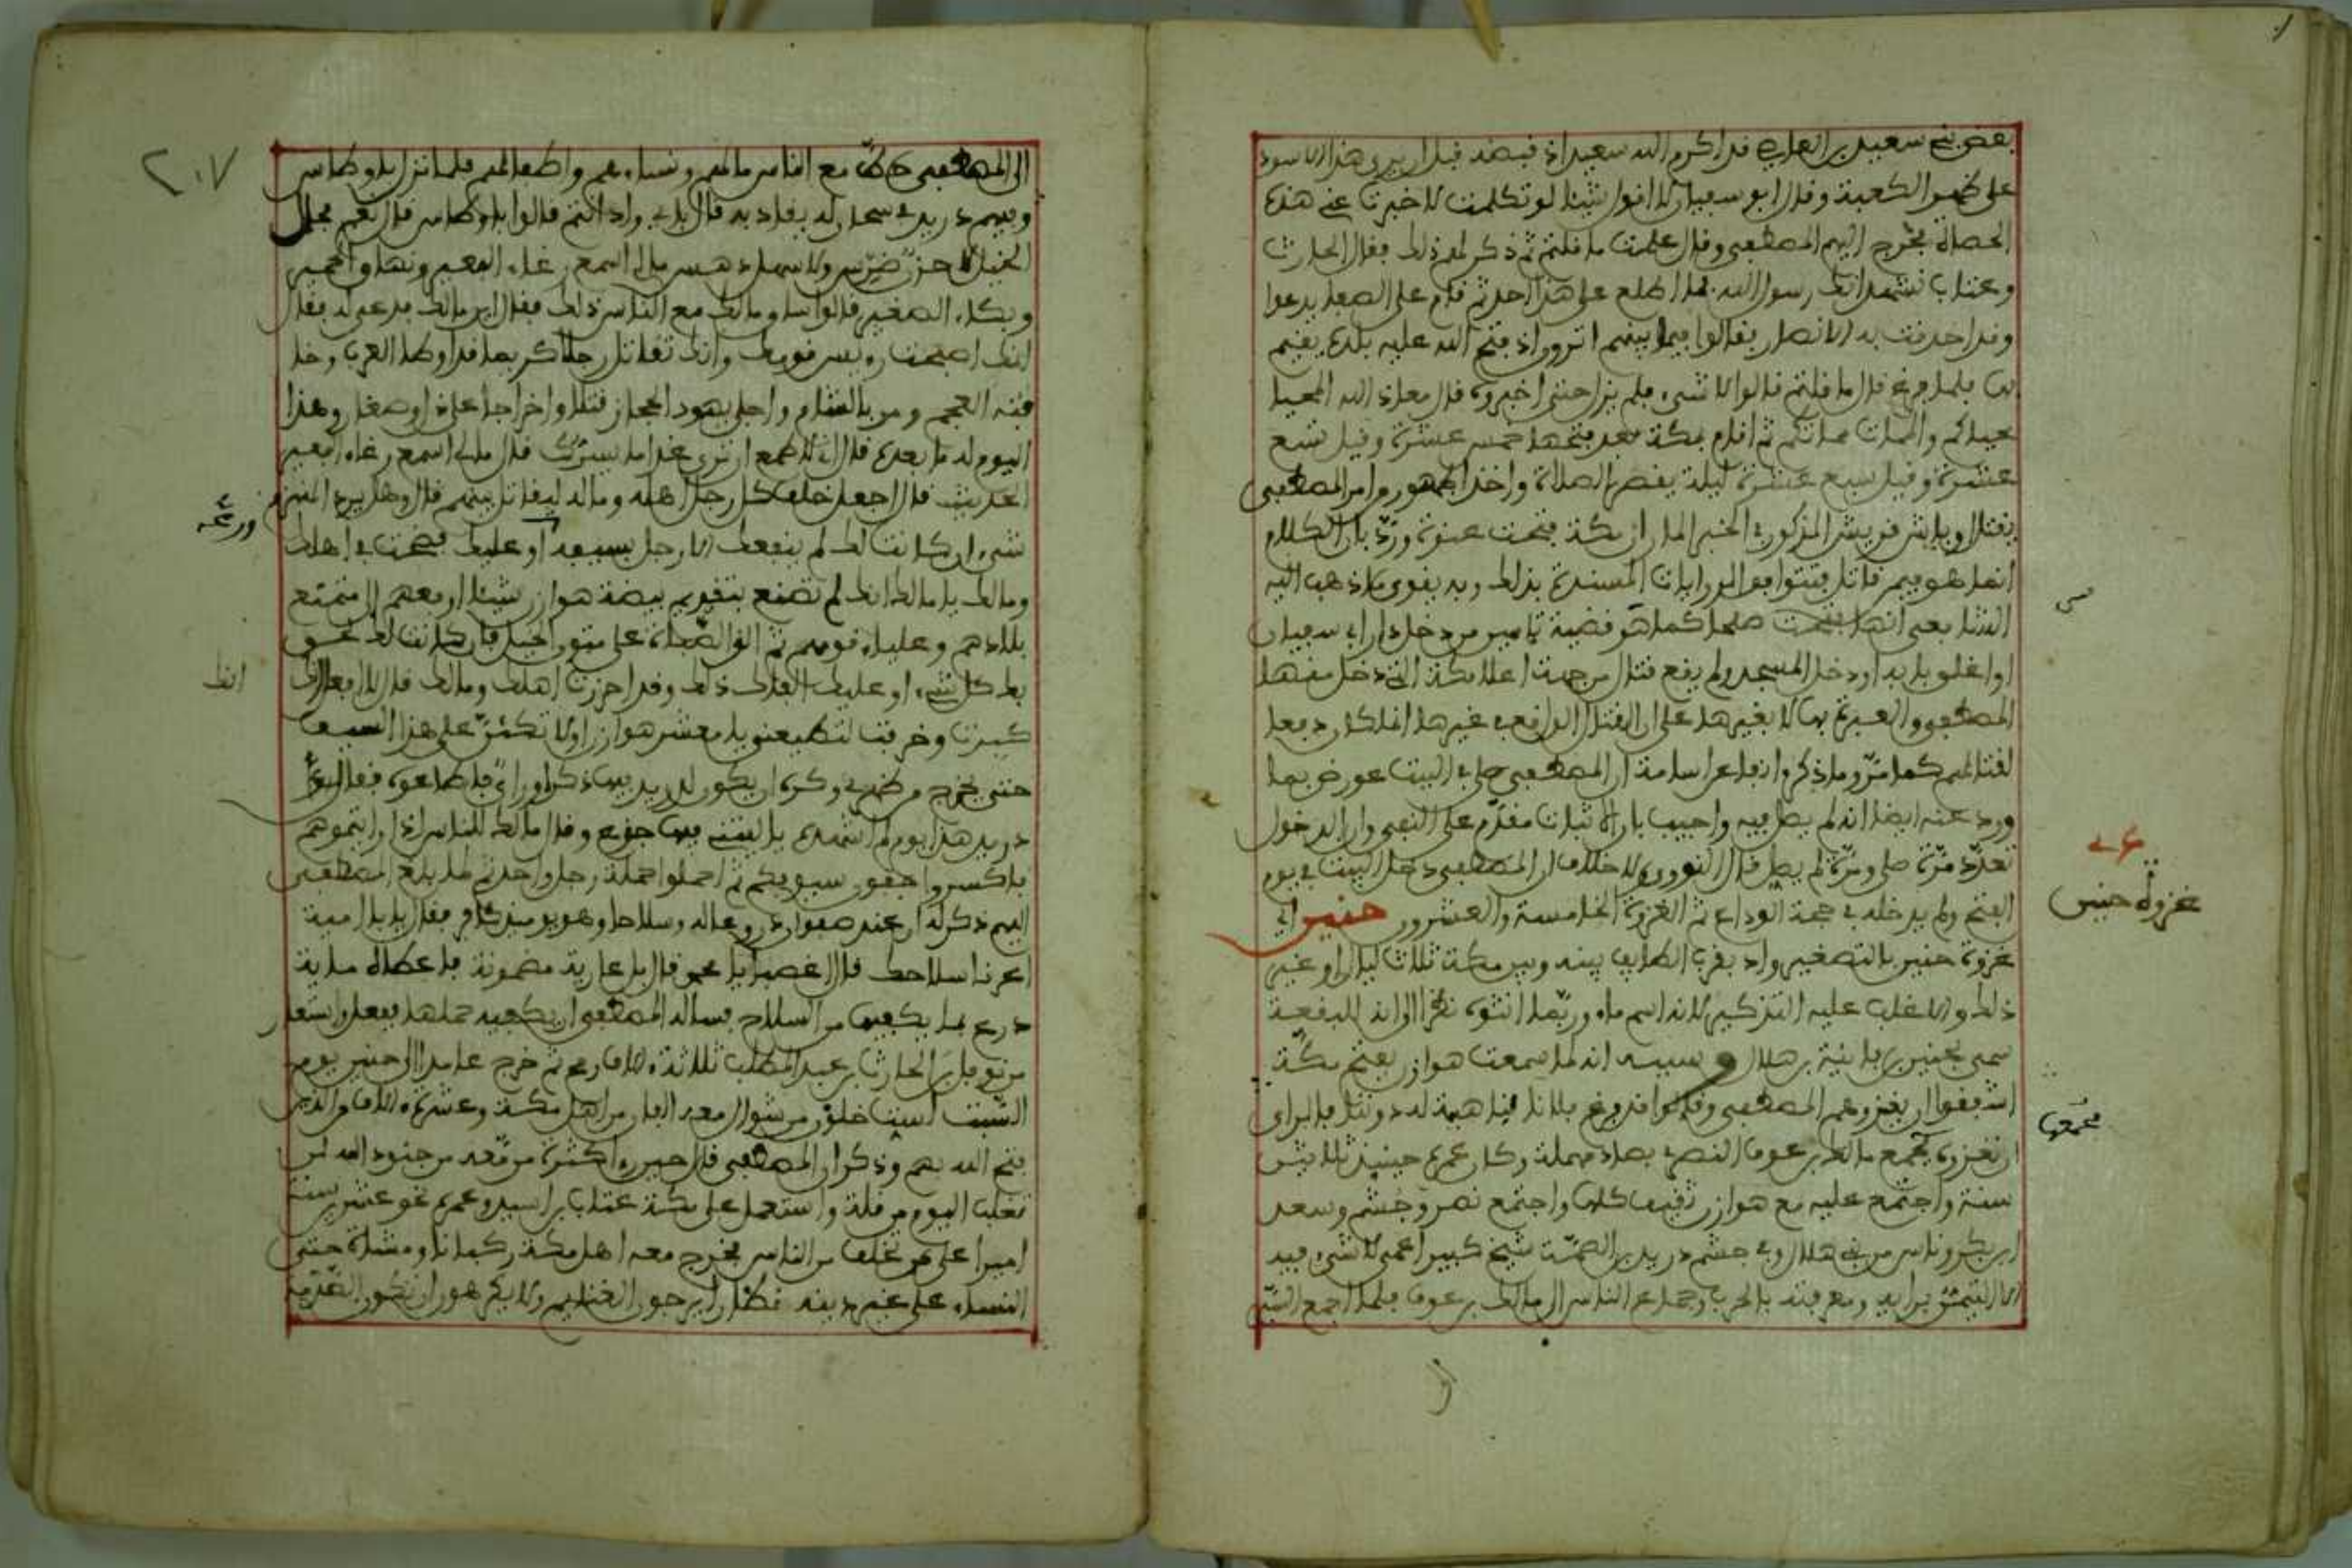 بعض بني سعيد بن العاصي قد اكرم الله سعيدا اذ قبضه قبل ان يرى هذا الاسود
على ظهر الكعبة وقال ابو سفيان لا اقول شيئا لو تكلمت لاخبرت عني هذه
الحصاة فخرج اليهم المصطفى وقال علمت ما قلتم ثم ذكر لهم ذلك فقال الحارث
وعتاب نشهد انك رسول الله ما اطلع على هذا احد ثم قام على الصفا يدعوا
وقد احدقت به الانصار فقالوا فيما بينهم اترون اذ فتح الله عليه بلده يقيم
بها فلما فرغ قال ما قلتم قالوا لا شيء فلم يزل حتى اخبروه قال معاذ الله المحيا
محياكم والممات مماتكم ثم اقام بمكة بعد فتحها خمس عشرة وقيل تسع
عشرة وقيل سبع عشرة ليلة يقصر الصلاة واخذ الجمهور من امر المصطفى
بقتل اوباش قريش المذكور في الخبر المار ان مكة فتحت عنوة ورد بان الكلام
انما هو فيمن قاتل فتتوافق الروايات المسندة بذلك وبه يقوى ما ذهب اليه
اما مـ يعني انها فتحت صلحا كما هو قضية تامين من دخل دار ابي سفيان
او اغلق بابه او دخل المسجد ولم يقع قتال من جهة اعلا مكة التي دخل منها
المصطفى والعبرة بها لا بغيرها على ان القتال الواقع في غيرها انما كان دفعا
لقتالهم كما مر وما ذكر انفا عن اسامة ان المصطفى صلى في البيت عورض بما
ورد عنه ايضا انه لم يصل فيه واجيب بان الاثبات مقدم على النفي وان الدخول
تعدد مرة صلى ومرة لم يصل قال النووي ولا خلاف ان المصطفى دخل البيت في يوم
الفتح ولم يدخله في حجة الوداع ثم الغزوة الخامسة والعشرون حنين اي
غزوة حنين بالتصغير واد بقرب الطايف بينه وبين مكة ثلاث ليال او غير
ذلك والاغلب عليه التذكير لانه اسم ماء وربما انثوه نظرا الى انه للبقعة
سمى بحنين بن قاينة بن هلال وسببه انه لما سمعت هوازن بفتح مكة
اشفقوا ان يغزوهم المصطفى وقالوا قد فرغ بالنا فلا ناهية له دوننا فالراي
ان نغزوه فجمع مالك بن عوف النصري بصاد مهملة وكان عمره حينيذ ثلاثين
سنة واجتمع عليه مع هوازن ثقيف كلها واجتمع نصر وجشم وسعد
ابن بكر وناس من بني هلال وفي جشم دريد بن الصمة شيخ كبير اعمى لا شيء فيه
الا التيمن برايه ومعرفته بالحرب وجماع الناس الى مالك بن عوف فلما اجمع السير
الى
فجمعها
غزوة حنين
٢٠٧
الى المصطفى حط مع الناس مالهم ونساءهم واطفالهم فلما نزل باوطاس
وفيهم دريد في شجار له يقاد به قال باي واد انتم قالوا باوطاس قال نعم مجال
الخيل لا حزن ضرس ولا سهل دهس مالي اسمع رغاء البعير ونهاق الحمير
وبكاء الصغير قالوا ساق مالك مع الناس ذلك فقال اين مالك فدعي له فقال
انك اصبحت رءيس قومك وانك تقاتل رجلا كريما قد اوطا العرب وخا
فته العجم ومن بالشام واجلى يهود الحجاز قتلا واخراجا عن ذل وصغار وهذا
اليوم له ما بعده قال اني لاطمع ان ترى غدا ما يسرك قال مالي اسمع رغاء البعير
الحديث قال اجعل خلف كل رجل اهله وماله ليقاتل عنهم قال وهل يرد المنهزم
شيء ان كانت لك لم ينفعك الا رجل بسيفه او عليك فضحت في اهلك
ومالك يا مالك انك لم تصنع بتقديم بيضة هوازن شيئا ارفعهم الى متمنع
بلادهم وعلياء قومهم ثم الق الصباة على متون الخيل فان كانت لك لحق
بك كل شيء او عليك الفاك ذلك وقد احرزت اهلك ومالك قال لا افعل
كبرت وخرفت لتطيعنني يا معشر هوازن او لاتكئن على هذا السيف
حتى يخرج من ظهري وكره ان يكون لدريد فيها ذكر او راي فاطاعوه فقال
دريد هذا يوم لم اشهده يا ليتني فيها جذع وقال مالك للناس اذا رايتموهم
فاكسروا جفون سيوفكم ثم احملوا حملة رجل واحد ثم لما بلغ المصطفى
اليهم ذكر له ان عند صفوان دروعا له وسلاحا وهو يوميذ كافر فقال يا با امية
اعرنا سلاحك قال اغصبا يا محمد قال بل عارية مضمونة فاعطاه ماية
درع بما يكفيها من السلاح فساله المصطفى ان يكفيه حملها ففعل واستعار
من نوفل بن الحارث بن عبد المطلب ثلاثة ءالاف رمح ثم خرج عامدا الى حنين يوم
السبت لست خلون من شوال معه الفان من اهل مكة وعشرة ءالاف الذين
فتح الله بهم وذكر ان المصطفى قال حين رءا كثرة من معه من جنود الله لن
نغلب اليوم من قلة واستعمل على مكة عتاب بن اسيد وعمره نحو عشرين سنة
اميرا على من تخلف من الناس فخرج معه اهل مكة ركبانا ومشاة حتى
النساء على غير دينه نظارا يرجون الغنايم ولا يكرهون ان تكون الصدمة
انك